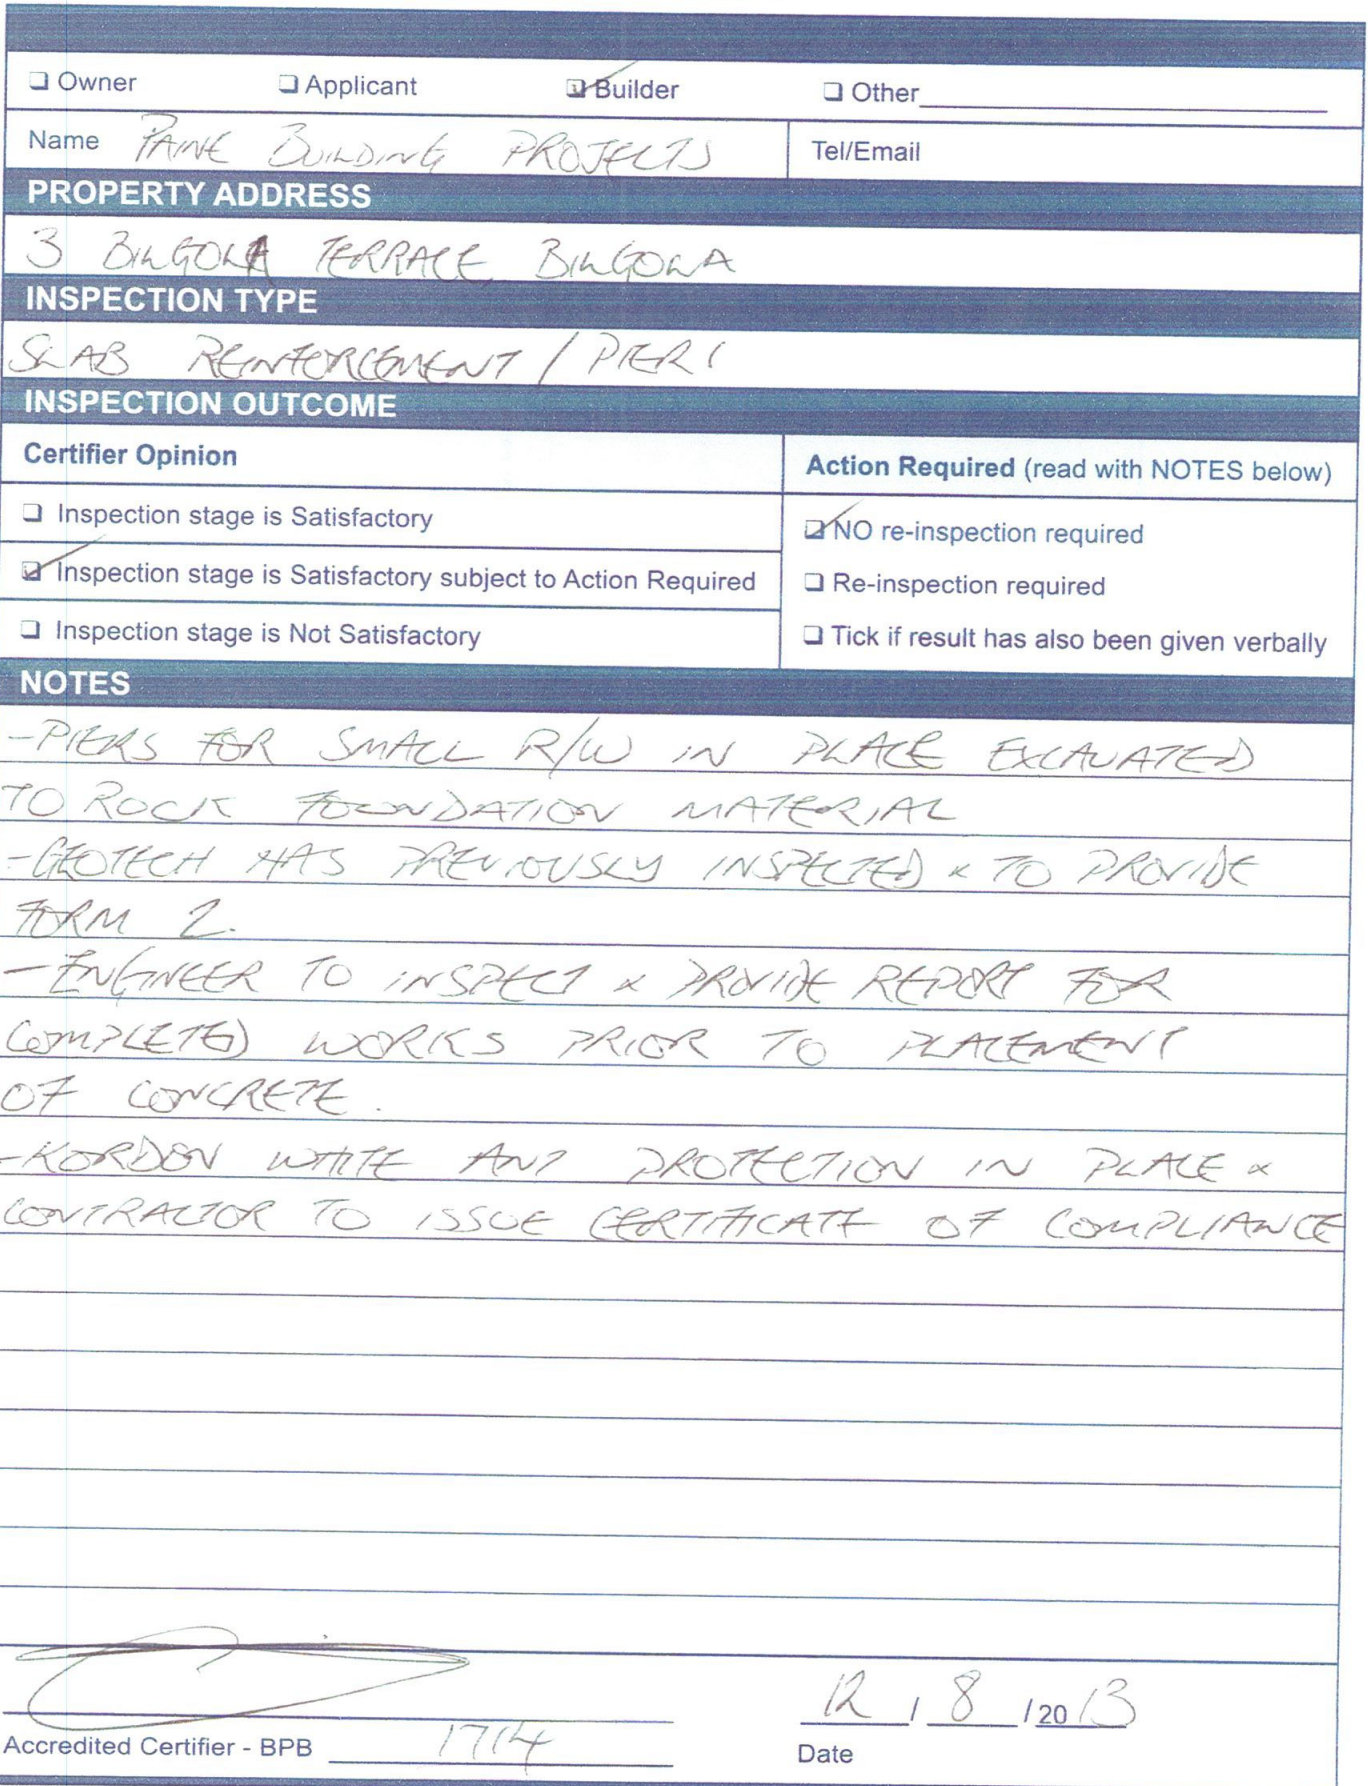 Owner Applicant Builder Other
Name PAINE BUILDING PROJECTS Tel/Email
PROPERTY ADDRESS
3 BILGOLA TERRACE BILGOLA
INSPECTION TYPE
SLAB REINFORCEMENT / PIERS
INSPECTION OUTCOME
Certifier Opinion
Action Required (read with NOTES below)
Inspection stage is Satisfactory
NO re-inspection required
Inspection stage is Satisfactory subject to Action Required
Re-inspection required
Inspection stage is Not Satisfactory
Tick if result has also been given verbally
NOTES
-PIERS FOR SMALL R/W IN PLACE EXCAVATED
TO ROCK FOUNDATION MATERIAL
-GEOTECH HAS PREVIOUSLY INSPECTED & TO PROVIDE
FORM 2.
-ENGINEER TO INSPECT & PROVIDE REPORT FOR
COMPLETED WORKS PRIOR TO PLACEMENT
OF CONCRETE.
-KORDON WHITE ANT PROTECTION IN PLACE &
CONTRACTOR TO ISSUE CERTIFICATE OF COMPLIANCE
12 / 8 / 20 13
Accredited Certifier - BPB 1714
Date